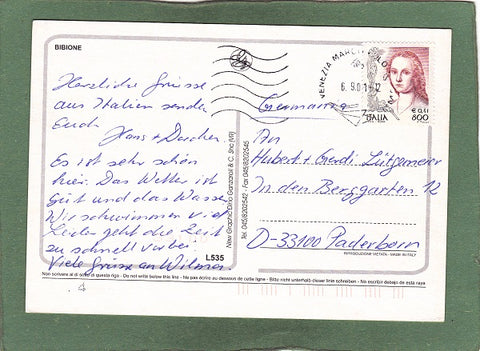 BIBIONE
Herzliche Grüsse
aus Italien senden
Euch
Hans +
Es ist sehr schön
hier. Das Wetter ist
gut und das Wasser.
Wir schwimmen viel
Leider geht die Zeit
zu schnell vorbei.
Viele Grüsse an Wilmen.
L535
VENEZIA MARCO POLO
6.9.01-12
ITALIA
€ 0,41
800
Germania
An
Hubert + Gerdi Lütgemeier
In den Berggarten 12
D-33100 Paderborn
Tel. 045/8202542 - Fax 045/8202545
RIPRODUZIONE VIETATA - MADE IN ITALY
Non scrivere al di sotto di questa riga - Do not write below this line - Ne pas écrire au-dessous de cette ligne - Bitte nicht unterhalb dieser linie schreiben - No escribir debajo de esta raya